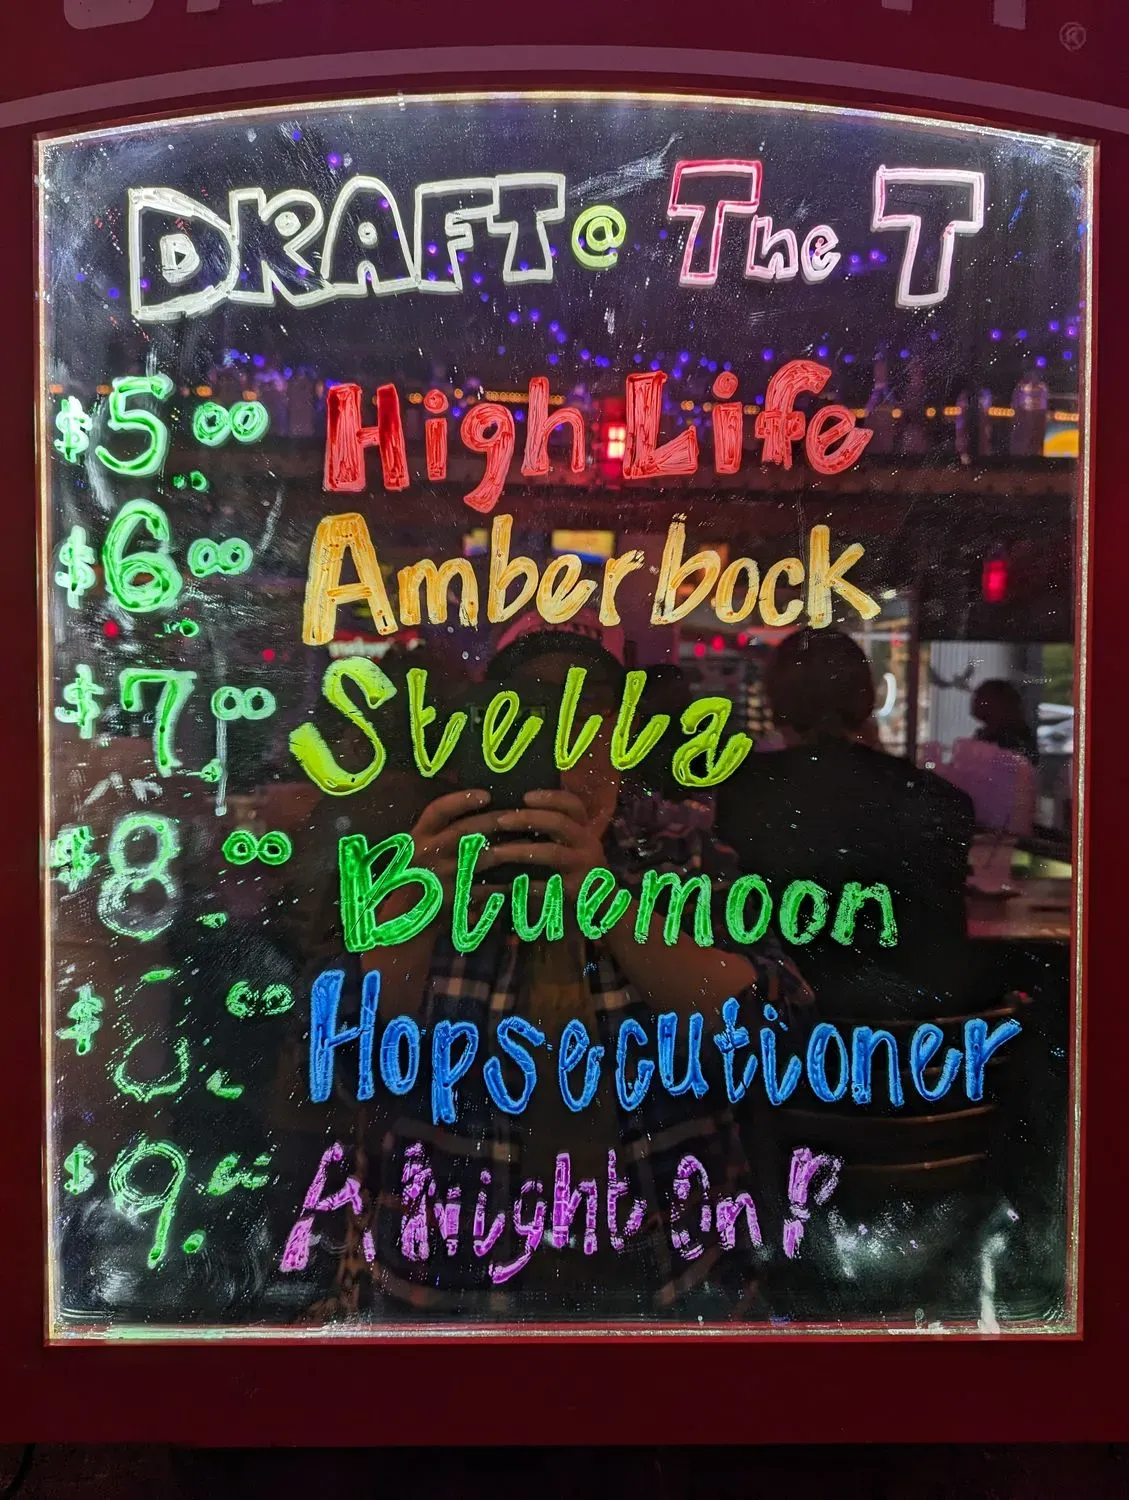 DRAFT @ The T
$5.00 High Life
$6.00 Amberbock
$7.00 Stella
$8.00 Bluemoon
$ .00 Hopsecutioner
$9. A Night On